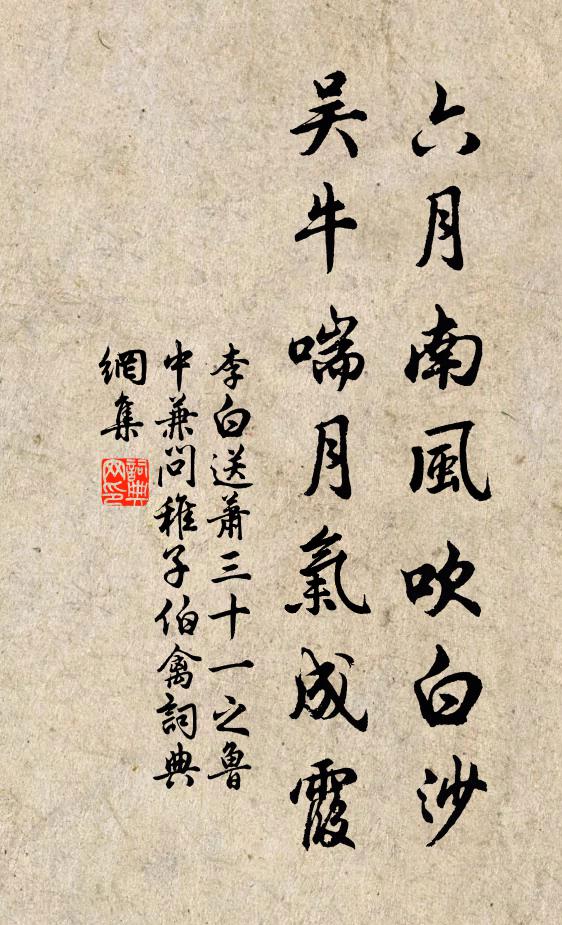 六月南風吹白沙
吳牛喘月氣成霞
李白送蕭三十一之魯
中兼問稚子伯禽詞典
網集
詞典
网印